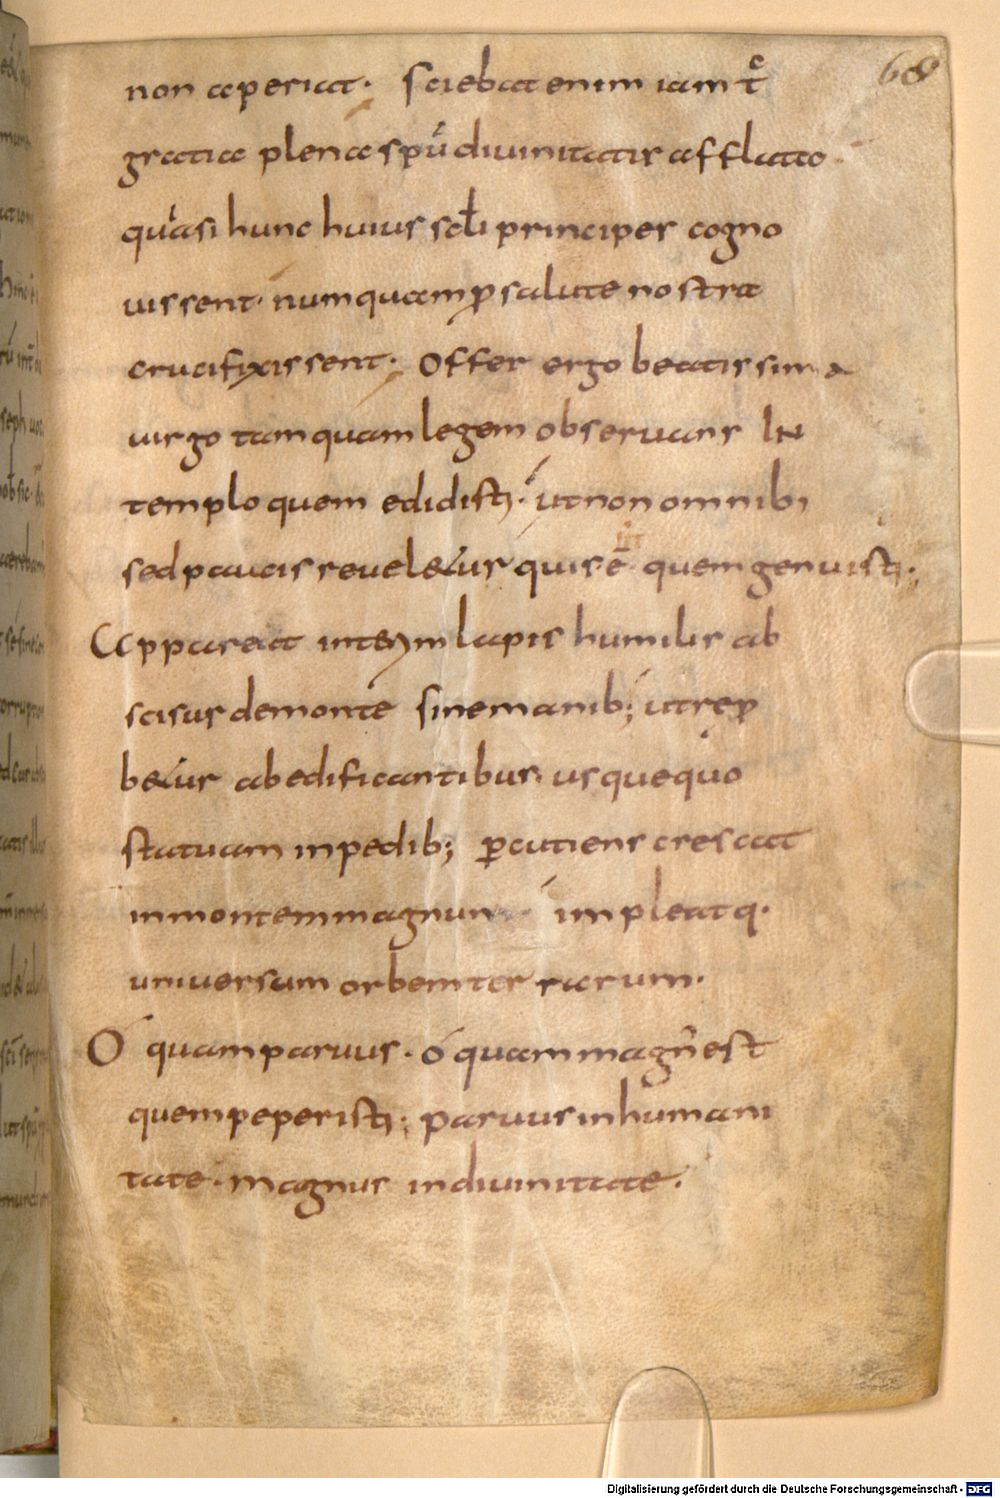 68
non aperiat. Sciebat enim iam tͨ
gratia plena spu diuinitatis afflato
quasi hunc huius scl̄i principes cogno
uissent. numquam ꝓ salute nostra
crucifixissent. Offer ergo beatissima
uirgo tamquam legem obseruans IN
templo quem edidisti. ut non omnib;
sed paucis reueletur quis ē quem genuisti.
Appareat interim lapis humilis ab
scisus demonte sine manib; ut repro
betur ab edificantibus. usquequo
statuam in pedib; ꝑcutiens crescat
in montem magnum impleatq.
uniuersum orbem terrarum.
O quam paruus. ó quam magn̄ est
quem peperisti; paruus in humani
tate. magnus in diuinitate.
Digitalisierung gefördert durch die Deutsche Forschungsgemeinschaft - DFG